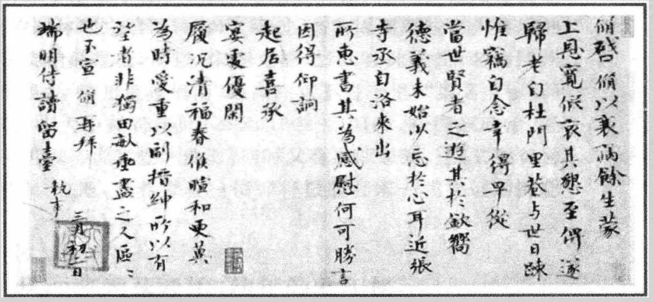 脩啓脩以衰病餘生蒙
上恩寬假哀其懇至俾遂
歸老自杜門里巷与世日踈
惟竊自念幸得早從
當世賢者之遊其於欽嚮
德義未始少忘於心耳近張
寺丞自洛來出
所惠書其為感慰何可勝言
因得仰詢
起居喜承
宴處優閑
履況清福春候暄和更冀
為時愛重以副搢紳所以有
望者非獨田畝垂盡之人區〻
也不宣脩再拜
端明侍讀留臺執事
三月初二日